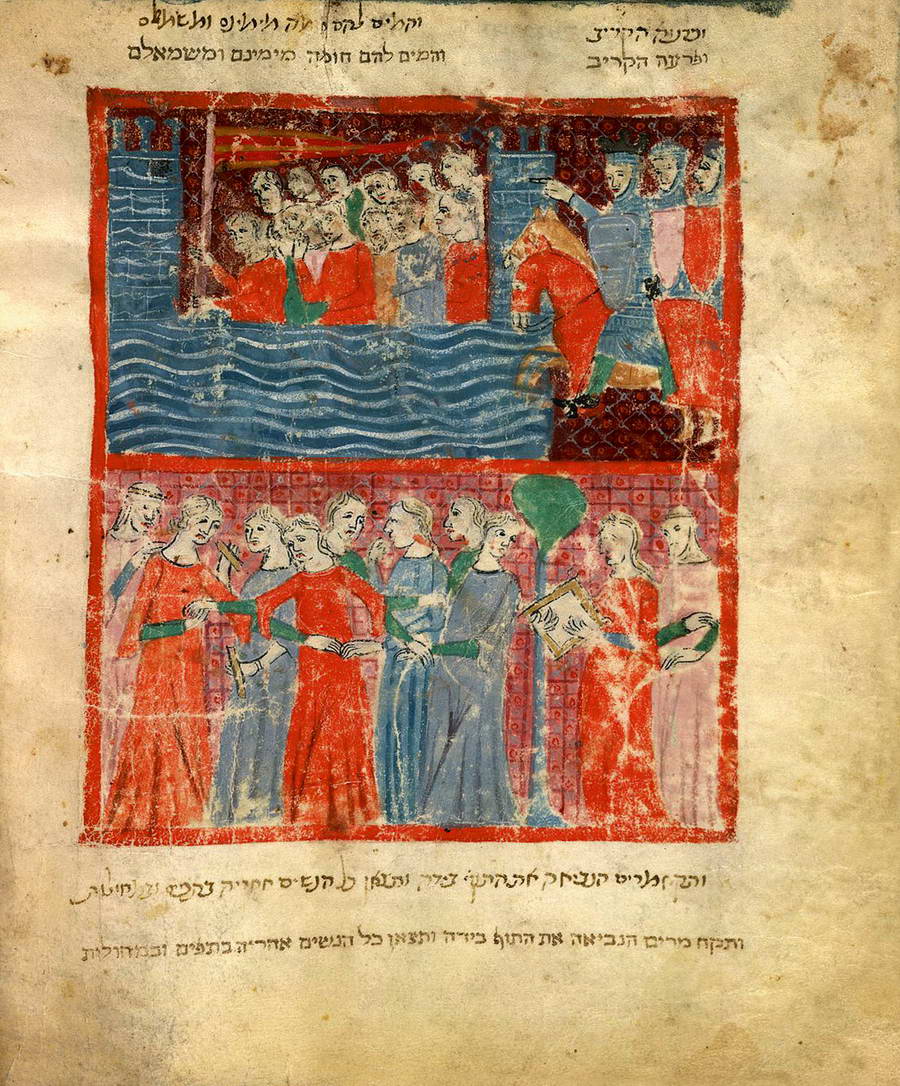 ופרעה הקריב
ופרעה הקריב
והמים להם חומה מימינם ומשמאלם
והמים להם חומה מימינם ומשמאלם
ותקח מרים הנביאה את התוף בידה ותצאן כל הנשים אחריה בתפים ובמחולות
ותקח מרים הנביאה את התוף בידה ותצאן כל הנשים אחריה בתפים ובמחולות